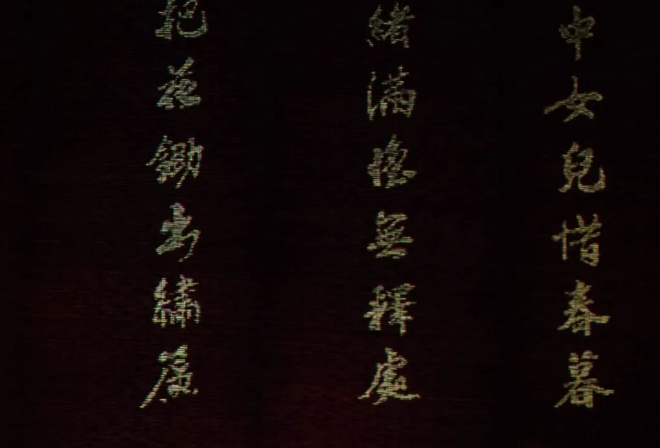 中女兒惜春暮
緒滿懷無釋處
把花鋤出繡簾